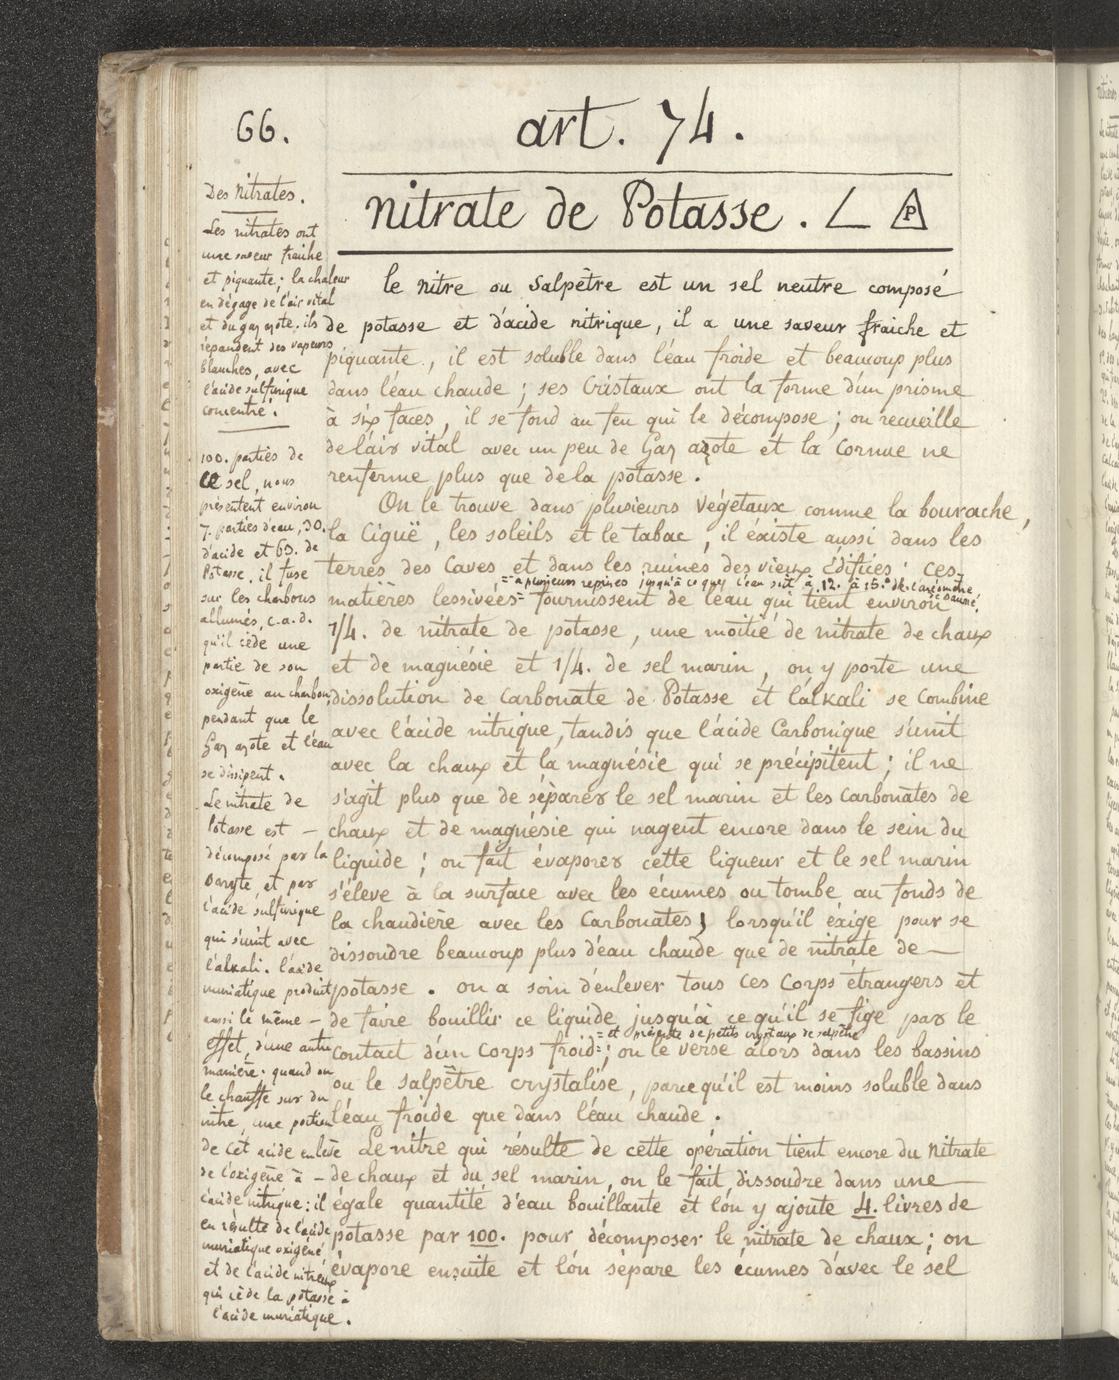 66.
art. 74.
nitrate de Potasse.
P
Des Nitrates.
Les nitrates ont
une saveur fraiche
et piquante; la chaleur
en dégage de l'air vital
et du gaz azote. ils
répandent des vapeurs
blanches, avec
l'acide sulfurique
concentré.
100. parties de
ce sel, nous
présentent environ
7. parties d'eau, 30.
d'acide et 63. de
Potasse, il fuse
sur les charbons
allumés, c.a.d.
qu'il cède une
partie de son
oxigène au charbon,
pendant que le
Gaz azote et l'eau
se dissipent.
Le nitrate de
Potasse est —
décomposé par la
Baryte, et par
l'acide sulfurique
qui s'unit avec
l'alkali. l'acide
muriatique produit
aussi le même —
effet, d'une autre
manière: quand on
le chauffe sur du
nitre, une portion
de cet acide enlève
de l'oxigène à —
l'acide nitrique: il
en résulte de l'acide
muriatique oxigéné
et de l'acide nitreux
qui cède la potasse à
l'acide muriatique.
le nitre ou Salpêtre est un sel neutre composé
de potasse et d'acide nitrique, il a une saveur fraiche et
piquante, il est soluble dans l'éau froide et beaucoup plus
dans l'éau chaude; ses Cristaux ont la forme d'un prisme
à six faces, il se fond au feu qui le décompose; on recueille
de l'air vital avec un peu de Gaz azote et la Cornue ne
renferme plus que de la potasse.
On le trouve dans plusieurs Végétaux comme la bourache,
la Ciguë, les soleils et le tabac, il éxiste aussi dans les
terres des Caves et dans les ruines des vieux Édifices; ces
= a plusieurs reprises jusqu'à ce que l'eau soit à 12. à 15.° de l'aréomètre
de Baumé,
matières lessivées= fournissent de l'éau qui tient environ
1/4. de nitrate de potasse, une moitié de nitrate de chaux
et de magnésie et 1/4. de sel marin, on y porte une
dissolution de Carbonate de Potasse et l'alkali se Combine
avec l'acide nitrique, tandis que l'acide Carbonique s'unit
avec la chaux et la magnésie qui se précipitent; il ne
s'agit plus que de séparer le sel marin et les Carbonates de
chaux et de magnésie qui nagent encore dans le sein du
liquide; on fait évaporer cette liqueur et le sel marin
s'éleve à la surface avec les écumes ou tombe au fonds de
la chaudière avec les Carbonates, lorsqu'il éxige pour se
dissoudre beaucoup plus d'éau chaude que de nitrate de —
potasse. on a soin d'enlever tous ces Corps étrangers et
de faire bouillir ce liquide jusqu'à ce qu'il se fige par le
= et présente de petits crystaux de salpêtre
contact d'un Corps froid=; on le verse alors dans les bassins
ou le salpêtre crystalise, parce qu'il est moins soluble dans
l'éau froide que dans l'éau chaude.
Le nitre qui résulte de cette opération tient encore du Nitrate
de chaux et du sel marin, on le fait dissoudre dans une —
égale quantité d'eau bouillante et l'on y ajoute 4. livres de
potasse par 100. pour décomposer le nitrate de chaux; on
évapore ensuite et l'on sépare les écumes d'avec le sel